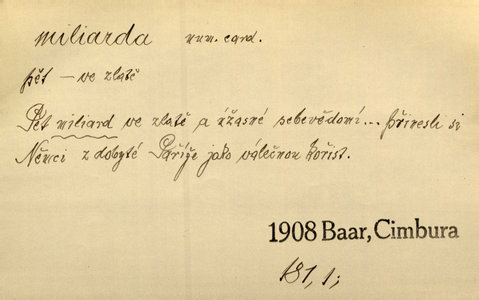 miliarda num. card.
pět – ve zlatě
Pět miliard ve zlatě a úžasné sebevědomí... přinesli si
Němci z dobyté Paříže jako válečnou kořist.
1908 Baar, Cimbura
181, 1;